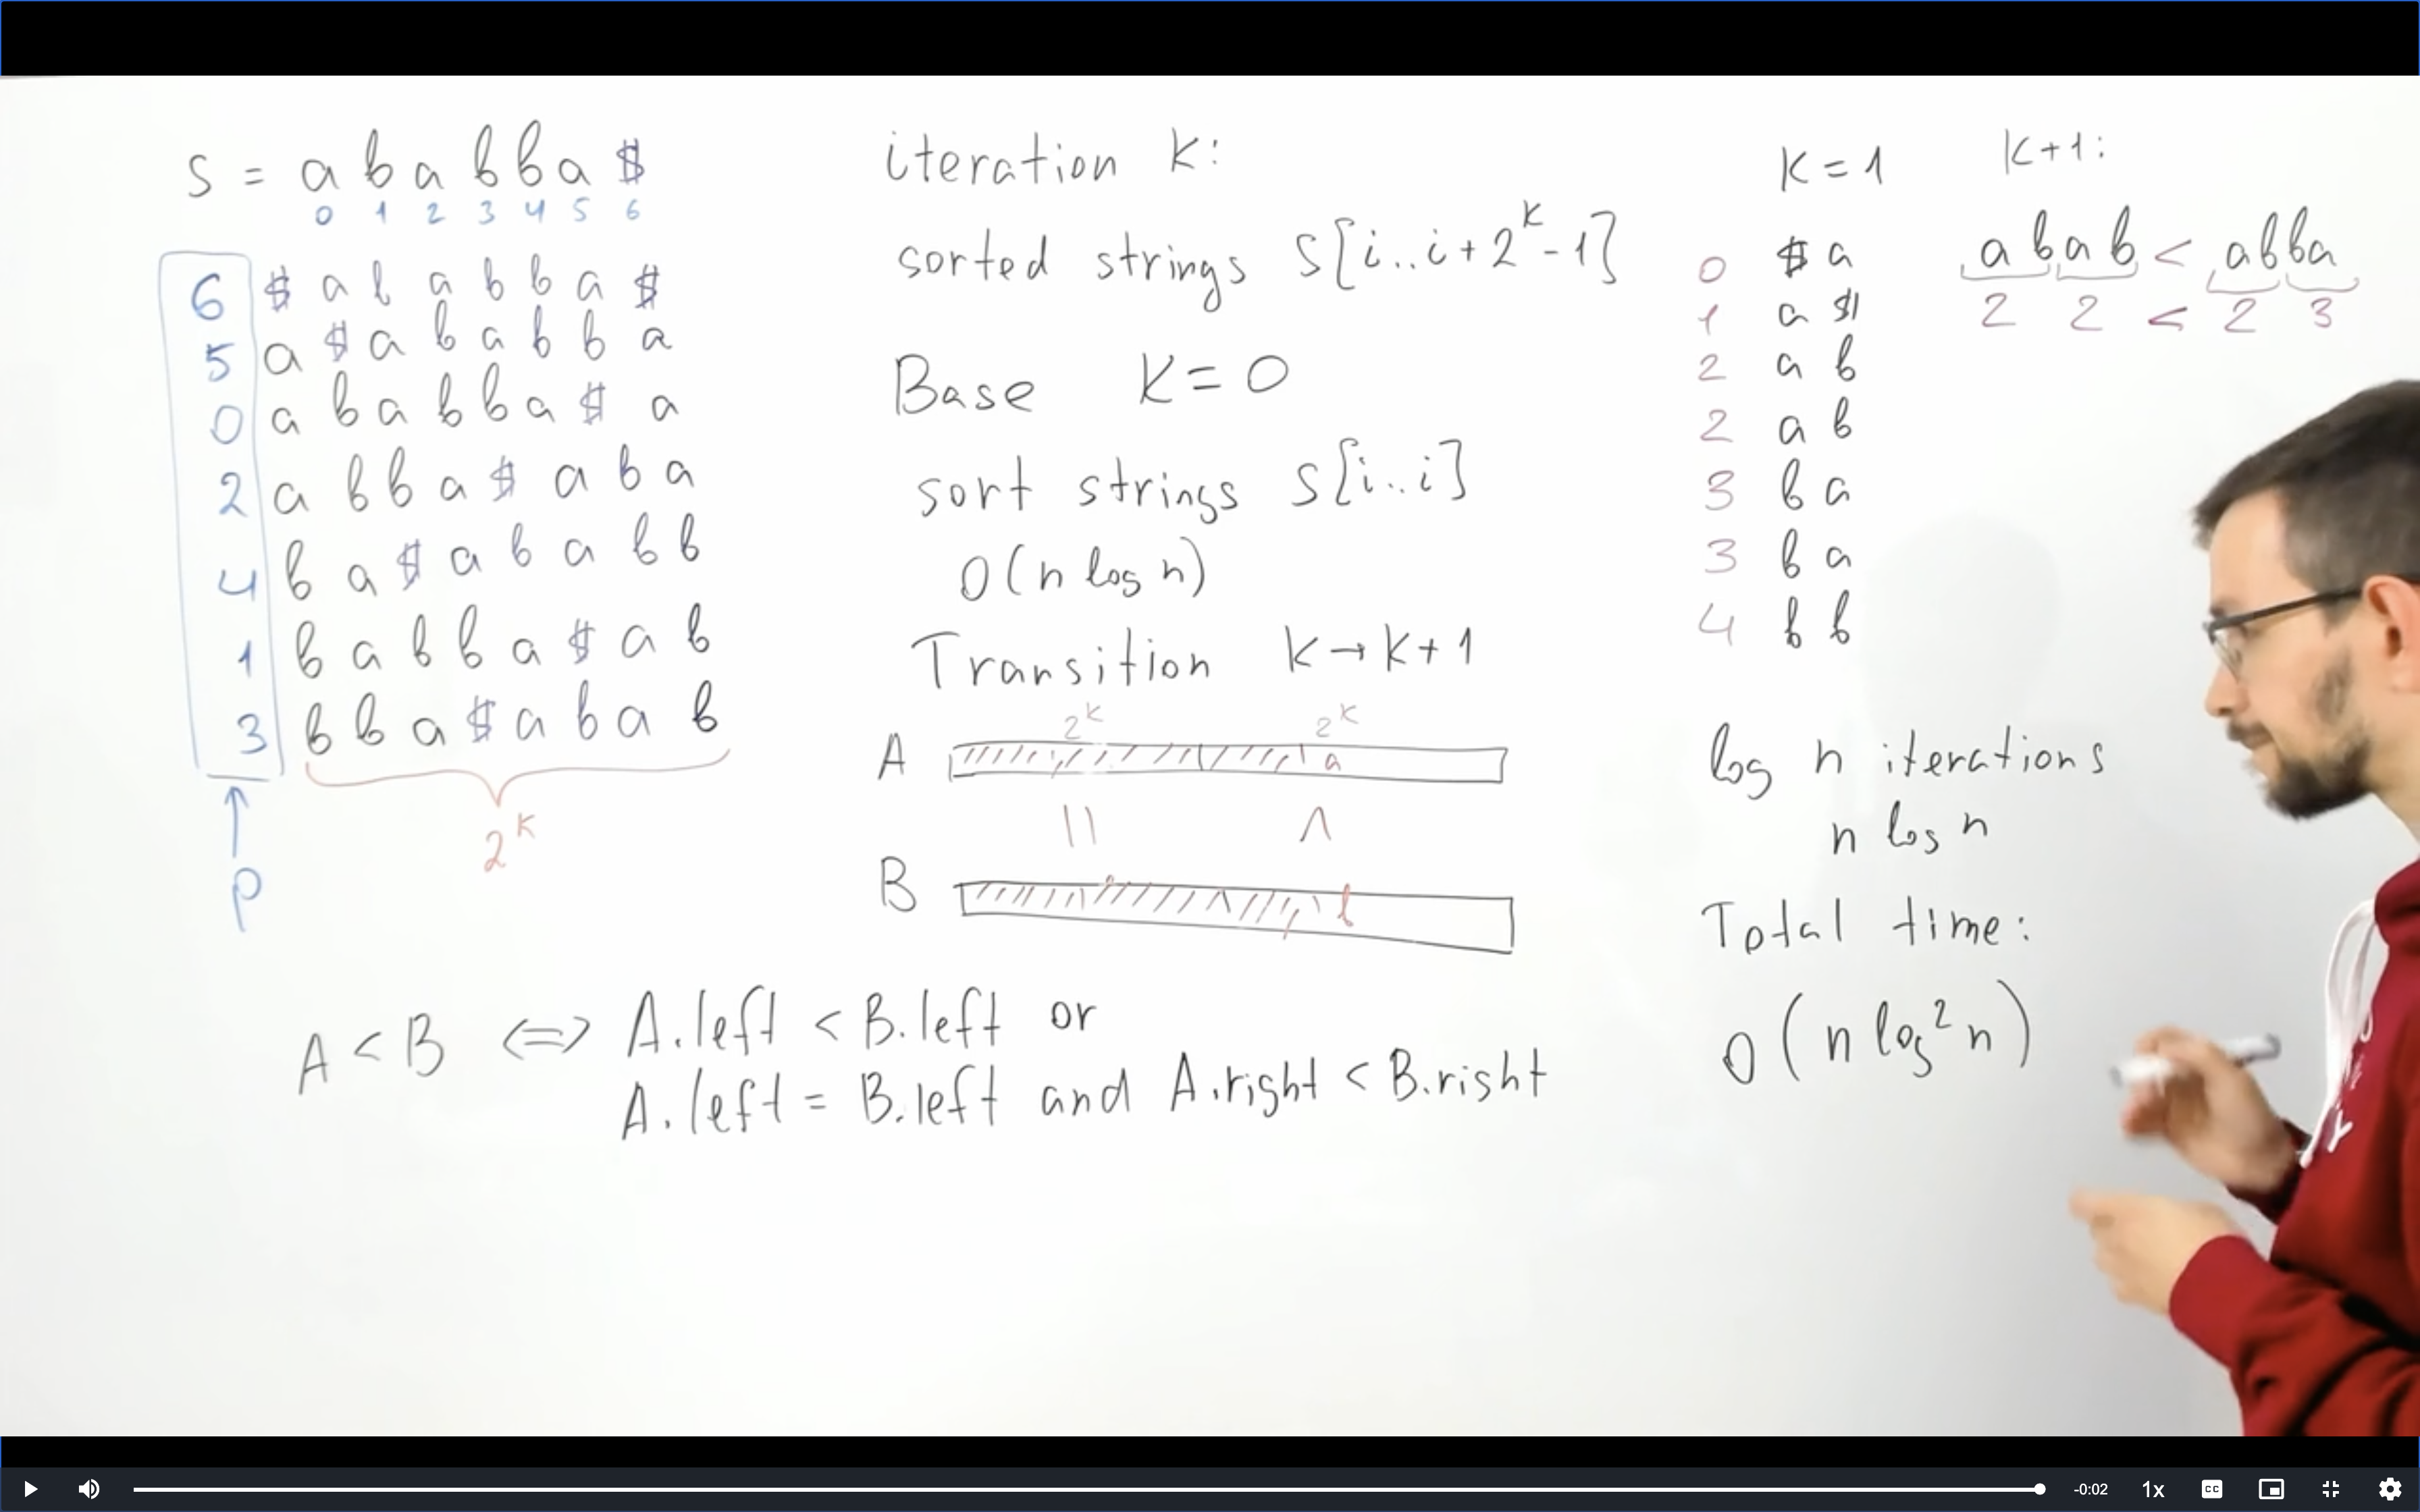 S = a b a b b a $
0 1 2 3 4 5 6
6 $ a b a b b a $
5 a $ a b a b b a
0 a b a b b a $ a
2 a b b a $ a b a
4 b a $ a b a b b
1 b a b b a $ a b
3 b b a $ a b a b
p
2^k
iteration k:
sorted strings S[i..i+2^k-1]
Base k=0
sort strings S[i..i]
O(n log n)
Transition k→k+1
2^k 2^k
A a
|| ∧
B b
A < B <=> A.left < B.left or
A.left = B.left and A.right < B.right
k=1
0 $ a
1 a $
2 a b
2 a b
3 b a
3 b a
4 b b
k+1:
abab < abba
2 2 < 2 3
log n iterations
n log n
Total time:
O(n log² n)
-0:02 1x CC